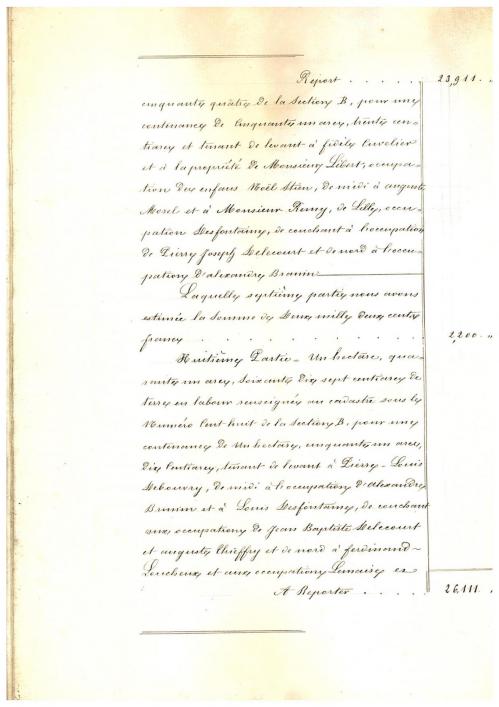 Report . . . . . 23,911. "
cinquante quatre de la Section B, pour une
contenance de Cinquante un ares, trente cen-
tiares et tenant de levant à fidèle Cuvelier
et à la propriété de Monsieur Libert, occupa-
tion des enfans Noël Stien, de midi à auguste
Morel et à Monsieur Remy, de Lille, occu-
pation Desfontaine, de couchant à l'occupation
de Pierre Joseph Delecourt et de nord à l'occu-
pation d'alexandre Brunin
Laquelle septième partie nous avons
estimée la Somme de Deux mille deux cents
francs . . . . . . . . . . 2,200 "
Huitième Partie - Un hectare, qua-
rante un ares, Soixante dix sept centiares de
terre en labour renseignée au cadastre sous le
Numéro Cent huit de la Section B, pour une
contenance de Un hectare, cinquante un ares,
dix Centiares, tenant de levant à Pierre-Louis
Debouvry, de midi à l'occupation d'alexandre
Brunin et à Louis Desfontaine, de couchant
aux occupations de Jean Baptiste Delecourt
et auguste Chieffry et de nord à ferdinand
Loucheux et aux occupations Lemaire et
A Reporter . . . . . 26,111. "